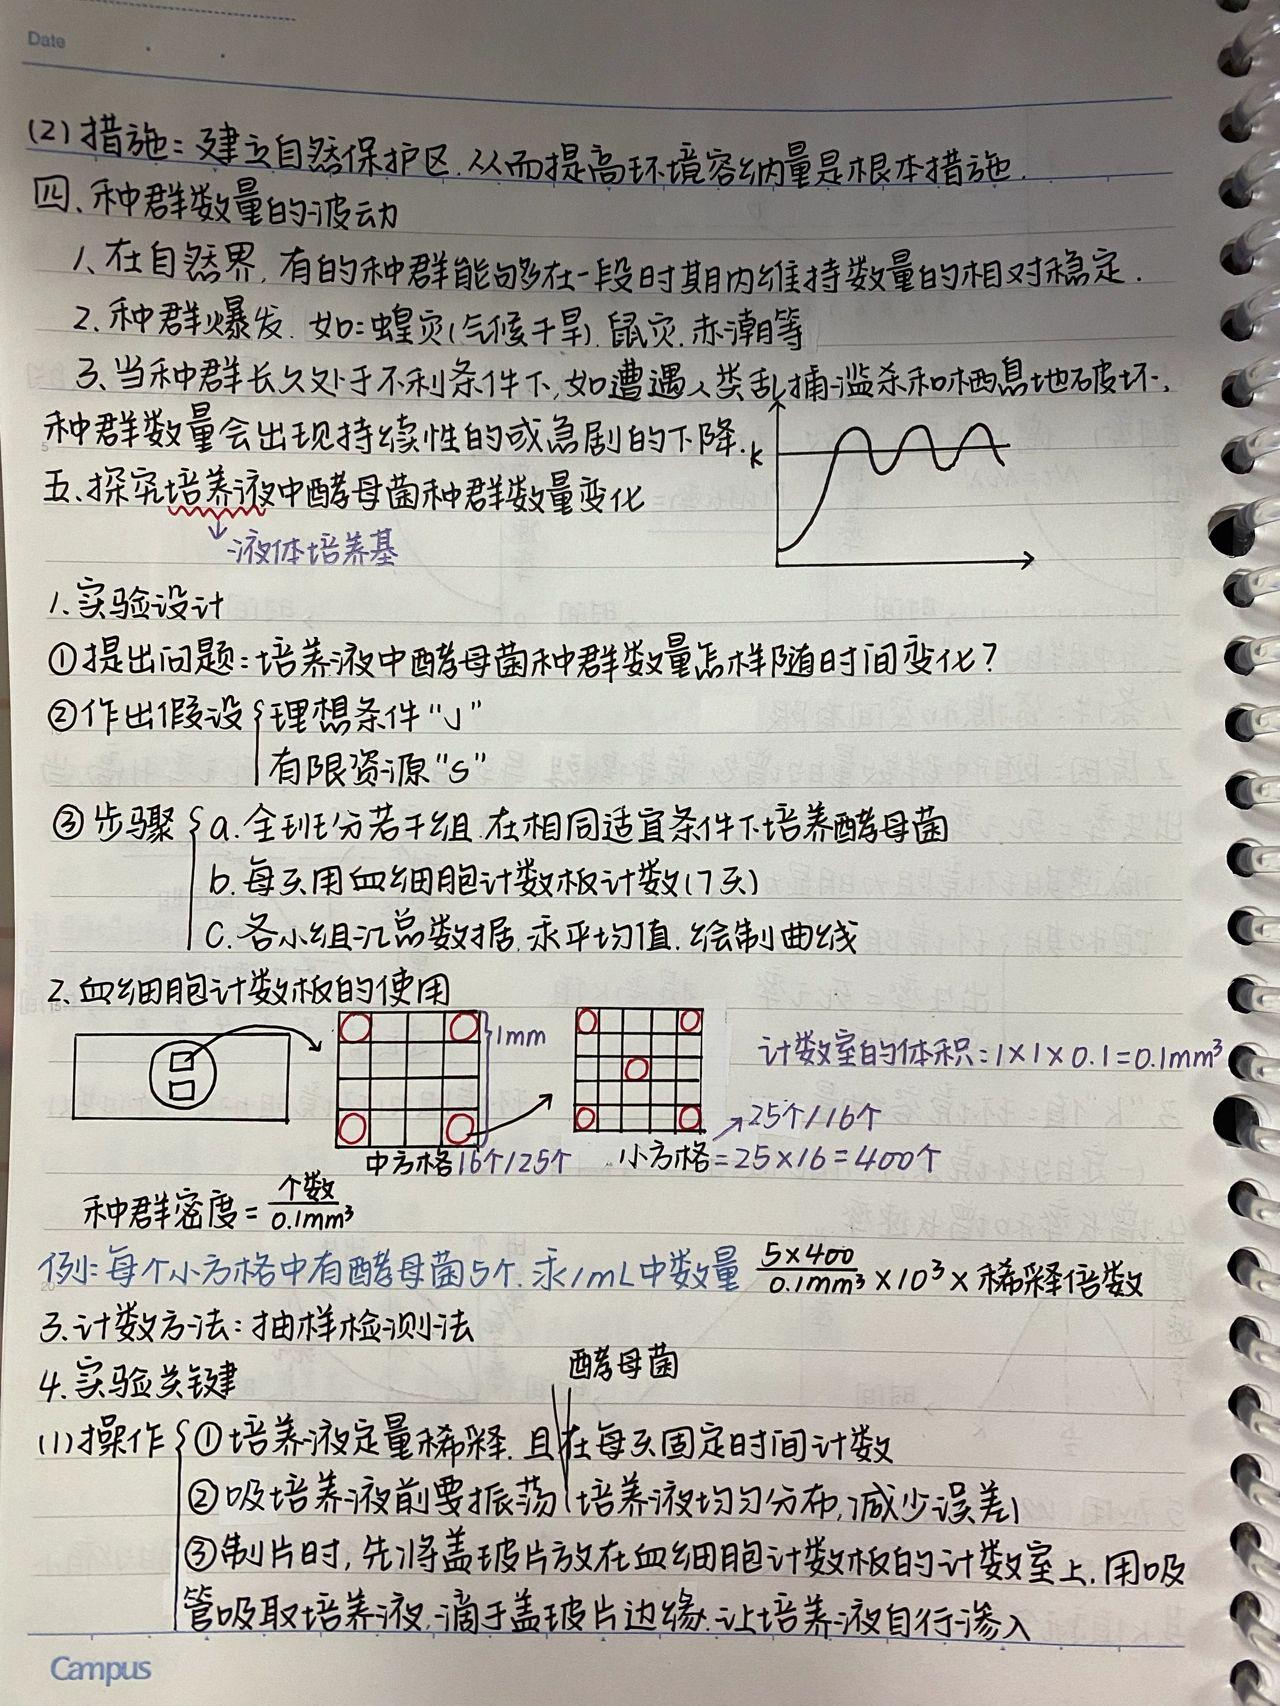 Date
(2)措施:建立自然保护区.从而提高环境容纳量是根本措施.
四、种群数量的波动
1、在自然界,有的种群能够在一段时期内维持数量的相对稳定.
2、种群爆发.如:蝗灾(气候干旱).鼠灾.赤潮等
3、当种群长久处于不利条件下,如遭遇人类乱捕滥杀和栖息地破坏,
种群数量会出现持续性的或急剧的下降.
K
五、探究培养液中酵母菌种群数量变化
液体培养基
1.实验设计
①提出问题:培养液中酵母菌种群数量怎样随时间变化?
②作出假设{理想条件"J"
有限资源"S"
③步骤{a.全班分若干组.在相同适宜条件下培养酵母菌
b.每天用血细胞计数板计数(7天)
c.各小组汇总数据.求平均值.绘制曲线
2.血细胞计数板的使用
1mm
计数室的体积:1×1×0.1=0.1mm³
25个/16个
中方格16个/25个
小方格=25×16=400个
种群密度=个数/0.1mm³
例:每个小方格中有酵母菌5个.求1mL中数量 5×400/0.1mm³×10³×稀释倍数
3.计数方法:抽样检测法
4.实验关键
酵母菌
(1)操作{①培养液定量稀释.且在每天固定时间计数
②吸培养液前要振荡 培养液均匀分布,减少误差
③制片时,先将盖玻片放在血细胞计数板的计数室上.用吸
管吸取培养液.滴于盖玻片边缘.让培养液自行渗入
Campus